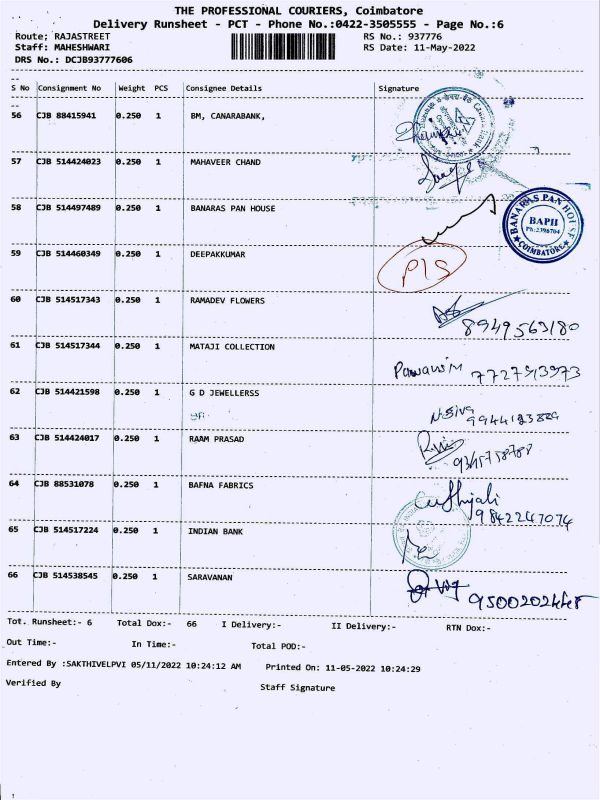 THE PROFESSIONAL COURIERS, Coimbatore
Delivery Runsheet - PCT - Phone No.:0422-3505555 - Page No.:6
Route; RAJASTREET RS No.: 937776
Staff: MAHESHWARI RS Date: 11-May-2022
DRS No.: DCJB93777606
S No Consignment No Weight PCS Consignee Details Signature
56 CJB 88415941 0.250 1 BM, CANARABANK,
57 CJB 514424023 0.250 1 MAHAVEER CHAND
58 CJB 514497489 0.250 1 BANARAS PAN HOUSE
BANARAS PAN HOUSE
BAPH
Ph:2396704
★COIMBATORE★
59 CJB 514460349 0.250 1 DEEPAKKUMAR
P/S
60 CJB 514517343 0.250 1 RAMADEV FLOWERS
8949563180
61 CJB 514517344 0.250 1 MATAJI COLLECTION
62 CJB 514421598 0.250 1 G D JEWELLERSS
63 CJB 514424017 0.250 1 RAAM PRASAD
64 CJB 88531078 0.250 1 BAFNA FABRICS
9842247074
65 CJB 514517224 0.250 1 INDIAN BANK
66 CJB 514538545 0.250 1 SARAVANAN
Tot. Runsheet:- 6 Total Dox:- 66 I Delivery:- II Delivery:- RTN Dox:-
Out Time:- In Time:- Total POD:-
Entered By :SAKTHIVELPVI 05/11/2022 10:24:12 AM Printed On: 11-05-2022 10:24:29
Verified By Staff Signature